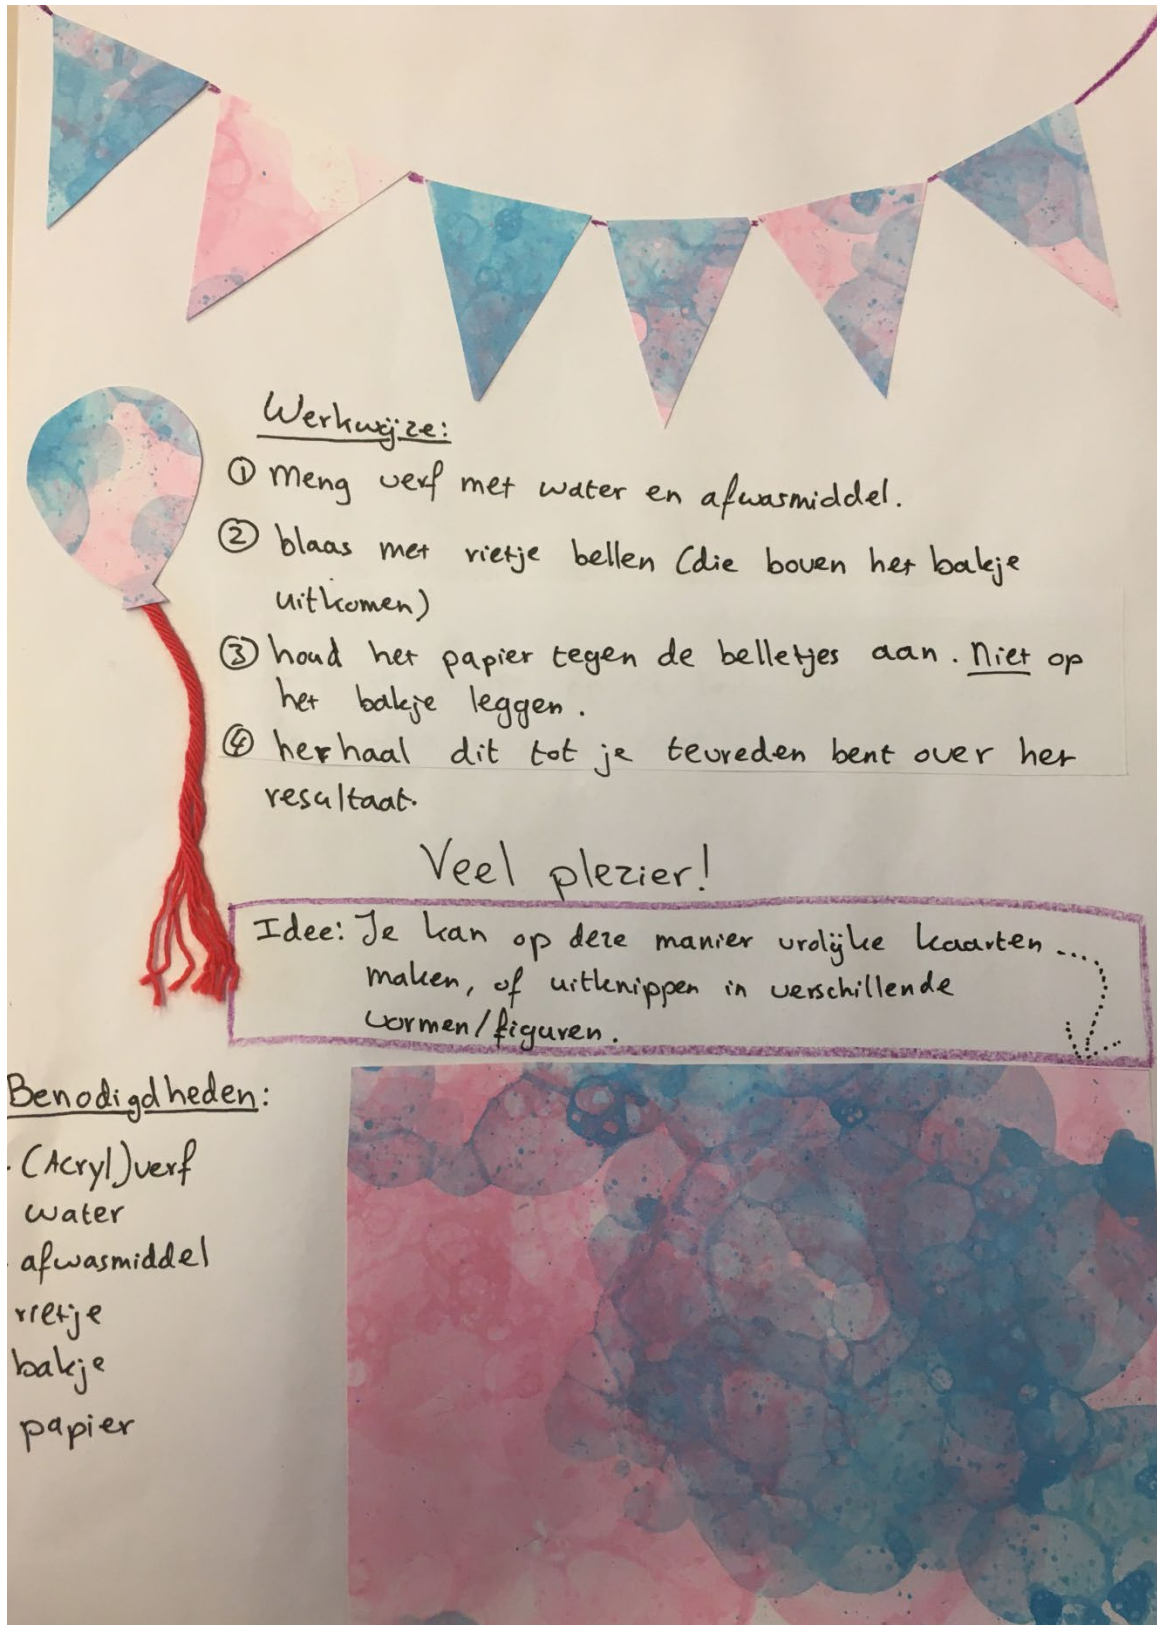 Werkwijze:
① Meng verf met water en afwasmiddel.
② blaas met rietje bellen (die boven het bakje
uitkomen)
③ houd het papier tegen de belletjes aan. Niet op
het bakje leggen.
④ herhaal dit tot je tevreden bent over het
resultaat.
Veel plezier!
Idee: Je kan op deze manier vrolijke kaarten
maken, of uitknippen in verschillende
vormen/figuren.
Benodigdheden:
· (Acryl)verf
water
· afwasmiddel
rietje
bakje
papier